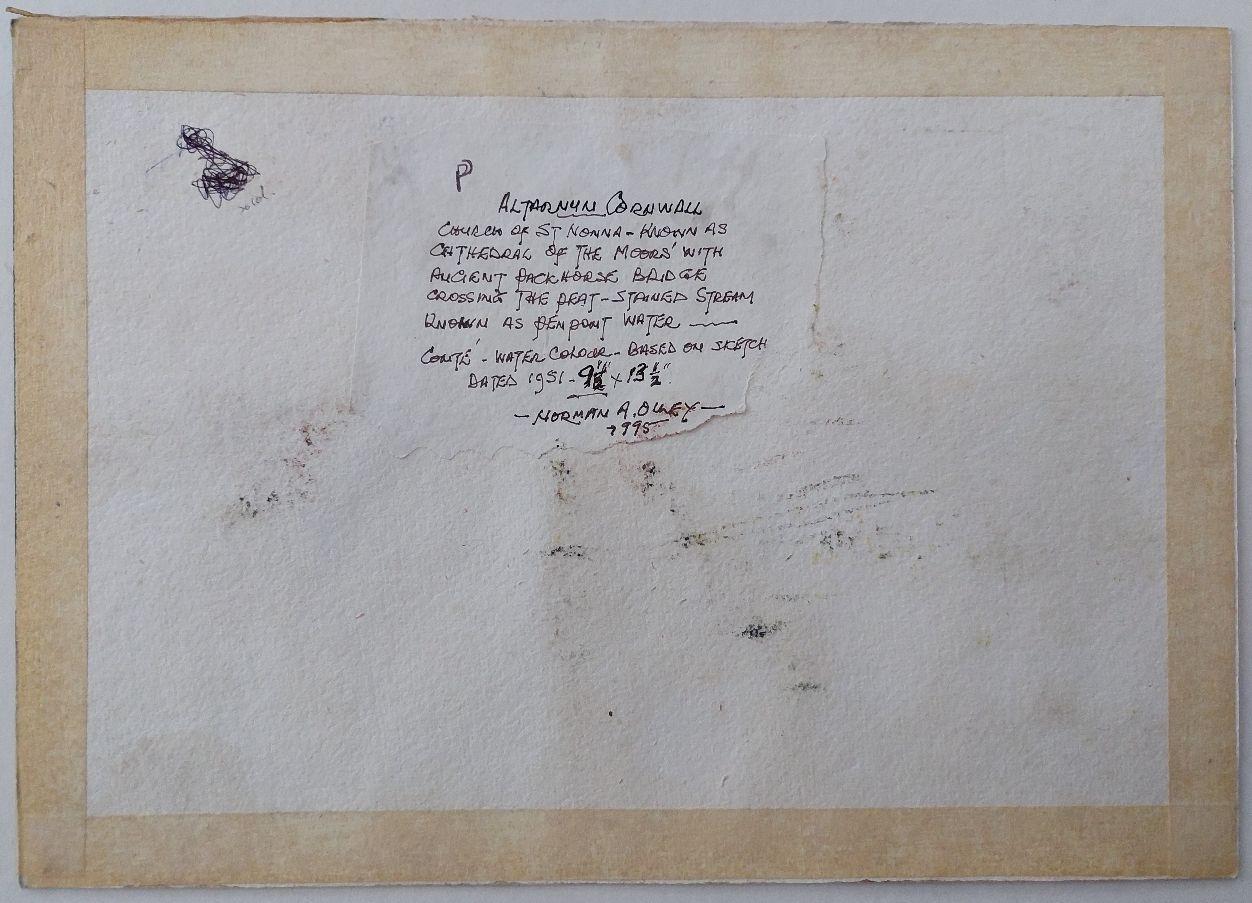 P
ALTARNUN CORNWALL
CHURCH OF ST NONNA - KNOWN AS
CATHEDRAL OF THE MOORS' WITH
ANCIENT PACKHORSE BRIDGE
CROSSING THE PEAT-STAINED STREAM
KNOWN AS PENPONT WATER
CONTÉ - WATER COLOUR - BASED ON SKETCH
DATED 1951 - 9½" x 13½"
- NORMAN A. OLLEY -
1995